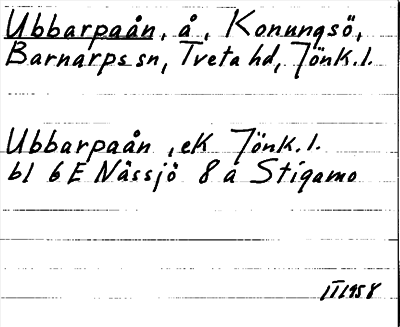 Ubbarpaån, å, Konungsö,
Barnarps sn, Tveta hd, Jönk. l.
Ubbarpaån, ek Jönk. l.
bl 6 E Nässjö 8 a Stigamo
III 1958